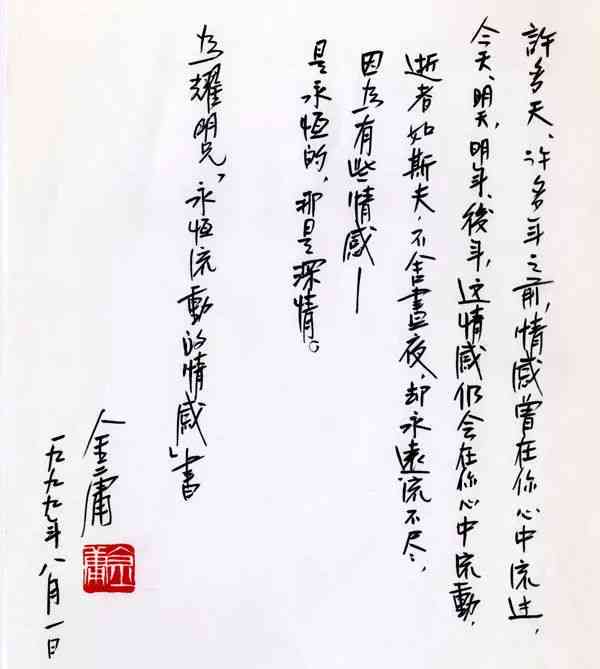 許多天、許多年之前,情感曾在你心中流过,
今天、明天,明年、後年,这情感仍会在你心中流動,
逝者如斯夫,不舍晝夜,却永遠流不尽,
因为有些情感—
是永恆的,那是深情。
为耀明兄「永恆流動的情感」書
金庸
一九九九年八月一日
金庸